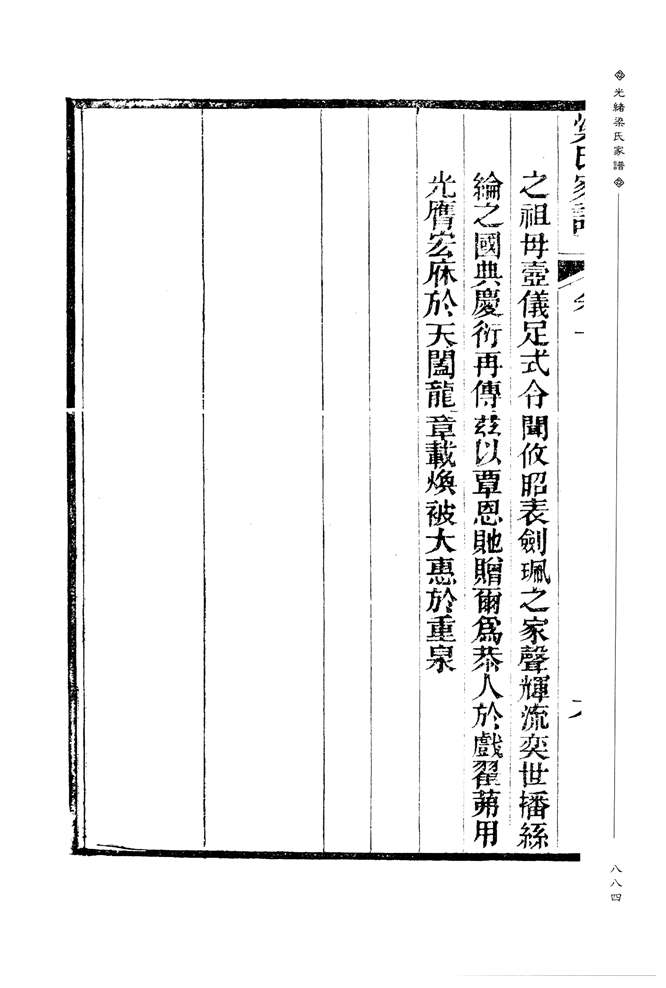 光緒梁氏家譜
梁氏家譜
之祖母壼儀足式令聞攸昭表劍珮之家聲輝流奕世播絲
綸之國典慶衍再傳玆以覃恩貤贈爾爲恭人於戲翟茀用
光膺宏庥於天闔龍章載煥被大惠於重泉
八八四